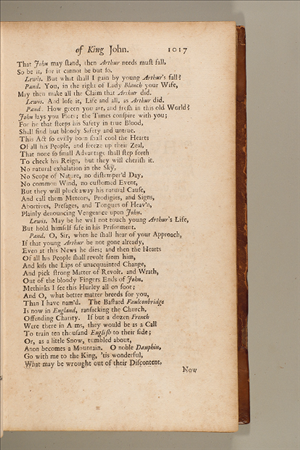 of King John. 1017
That John may stand, then Arthur needs must fall,
So be it, for it cannot be but so.
Lewis. But what shall I gain by young Arthur's fall?
Pand. You, in the right of Lady Blanch your Wife,
May then make all the Claim that Arthur did.
Lewis. And lose it, Life and all, as Arthur did.
Pand. How green you are, and fresh in this old World?
John lays you Plots; the Times conspire with you;
For he that steeps his Safety in true Blood,
Shall find but bloody Safety and untrue.
This Act so evilly born shall cool the Hearts
Of all his People, and freeze up their Zeal,
That none so small Advantage shall step forth
To check his Reign, but they will cherish it.
No natural exhalation in the Sky,
No Scope of Nature, no distemper'd Day,
No common Wind, no customed Event,
But they will pluck away his natural Cause,
And call them Meteors, Prodigies, and Signs,
Abortives, Presages, and Tongues of Heav'n,
Plainly denouncing Vengeance upon John.
Lewis. May be he will not touch young Arthur's Life,
But hold himself safe in his Prisonment.
Pand. O, Sir, when he shall hear of your Approach,
If that young Arthur be not gone already,
Even at this News he dies; and then the Hearts
Of all his People shall revolt from him,
And kiss the Lips of unacquainted Change,
And pick strong Matter of Revolt, and Wrath,
Out of the bloody Fingers Ends of John.
Methinks I see this Hurley all on foot;
And O, what better matter breeds for you,
Than I have nam'd. The Bastard Faulconbridge
Is now in England, ransacking the Church,
Offending Charity. If but a dozen French
Were there in Arms, they would be as a Call
To train ten thousand English to their side;
Or, as a little Snow, tumbled about,
Anon becomes a Mountain. O noble Dauphin,
Go with me to the King, 'tis wonderful,
What may be wrought out of their Discontent.
Now